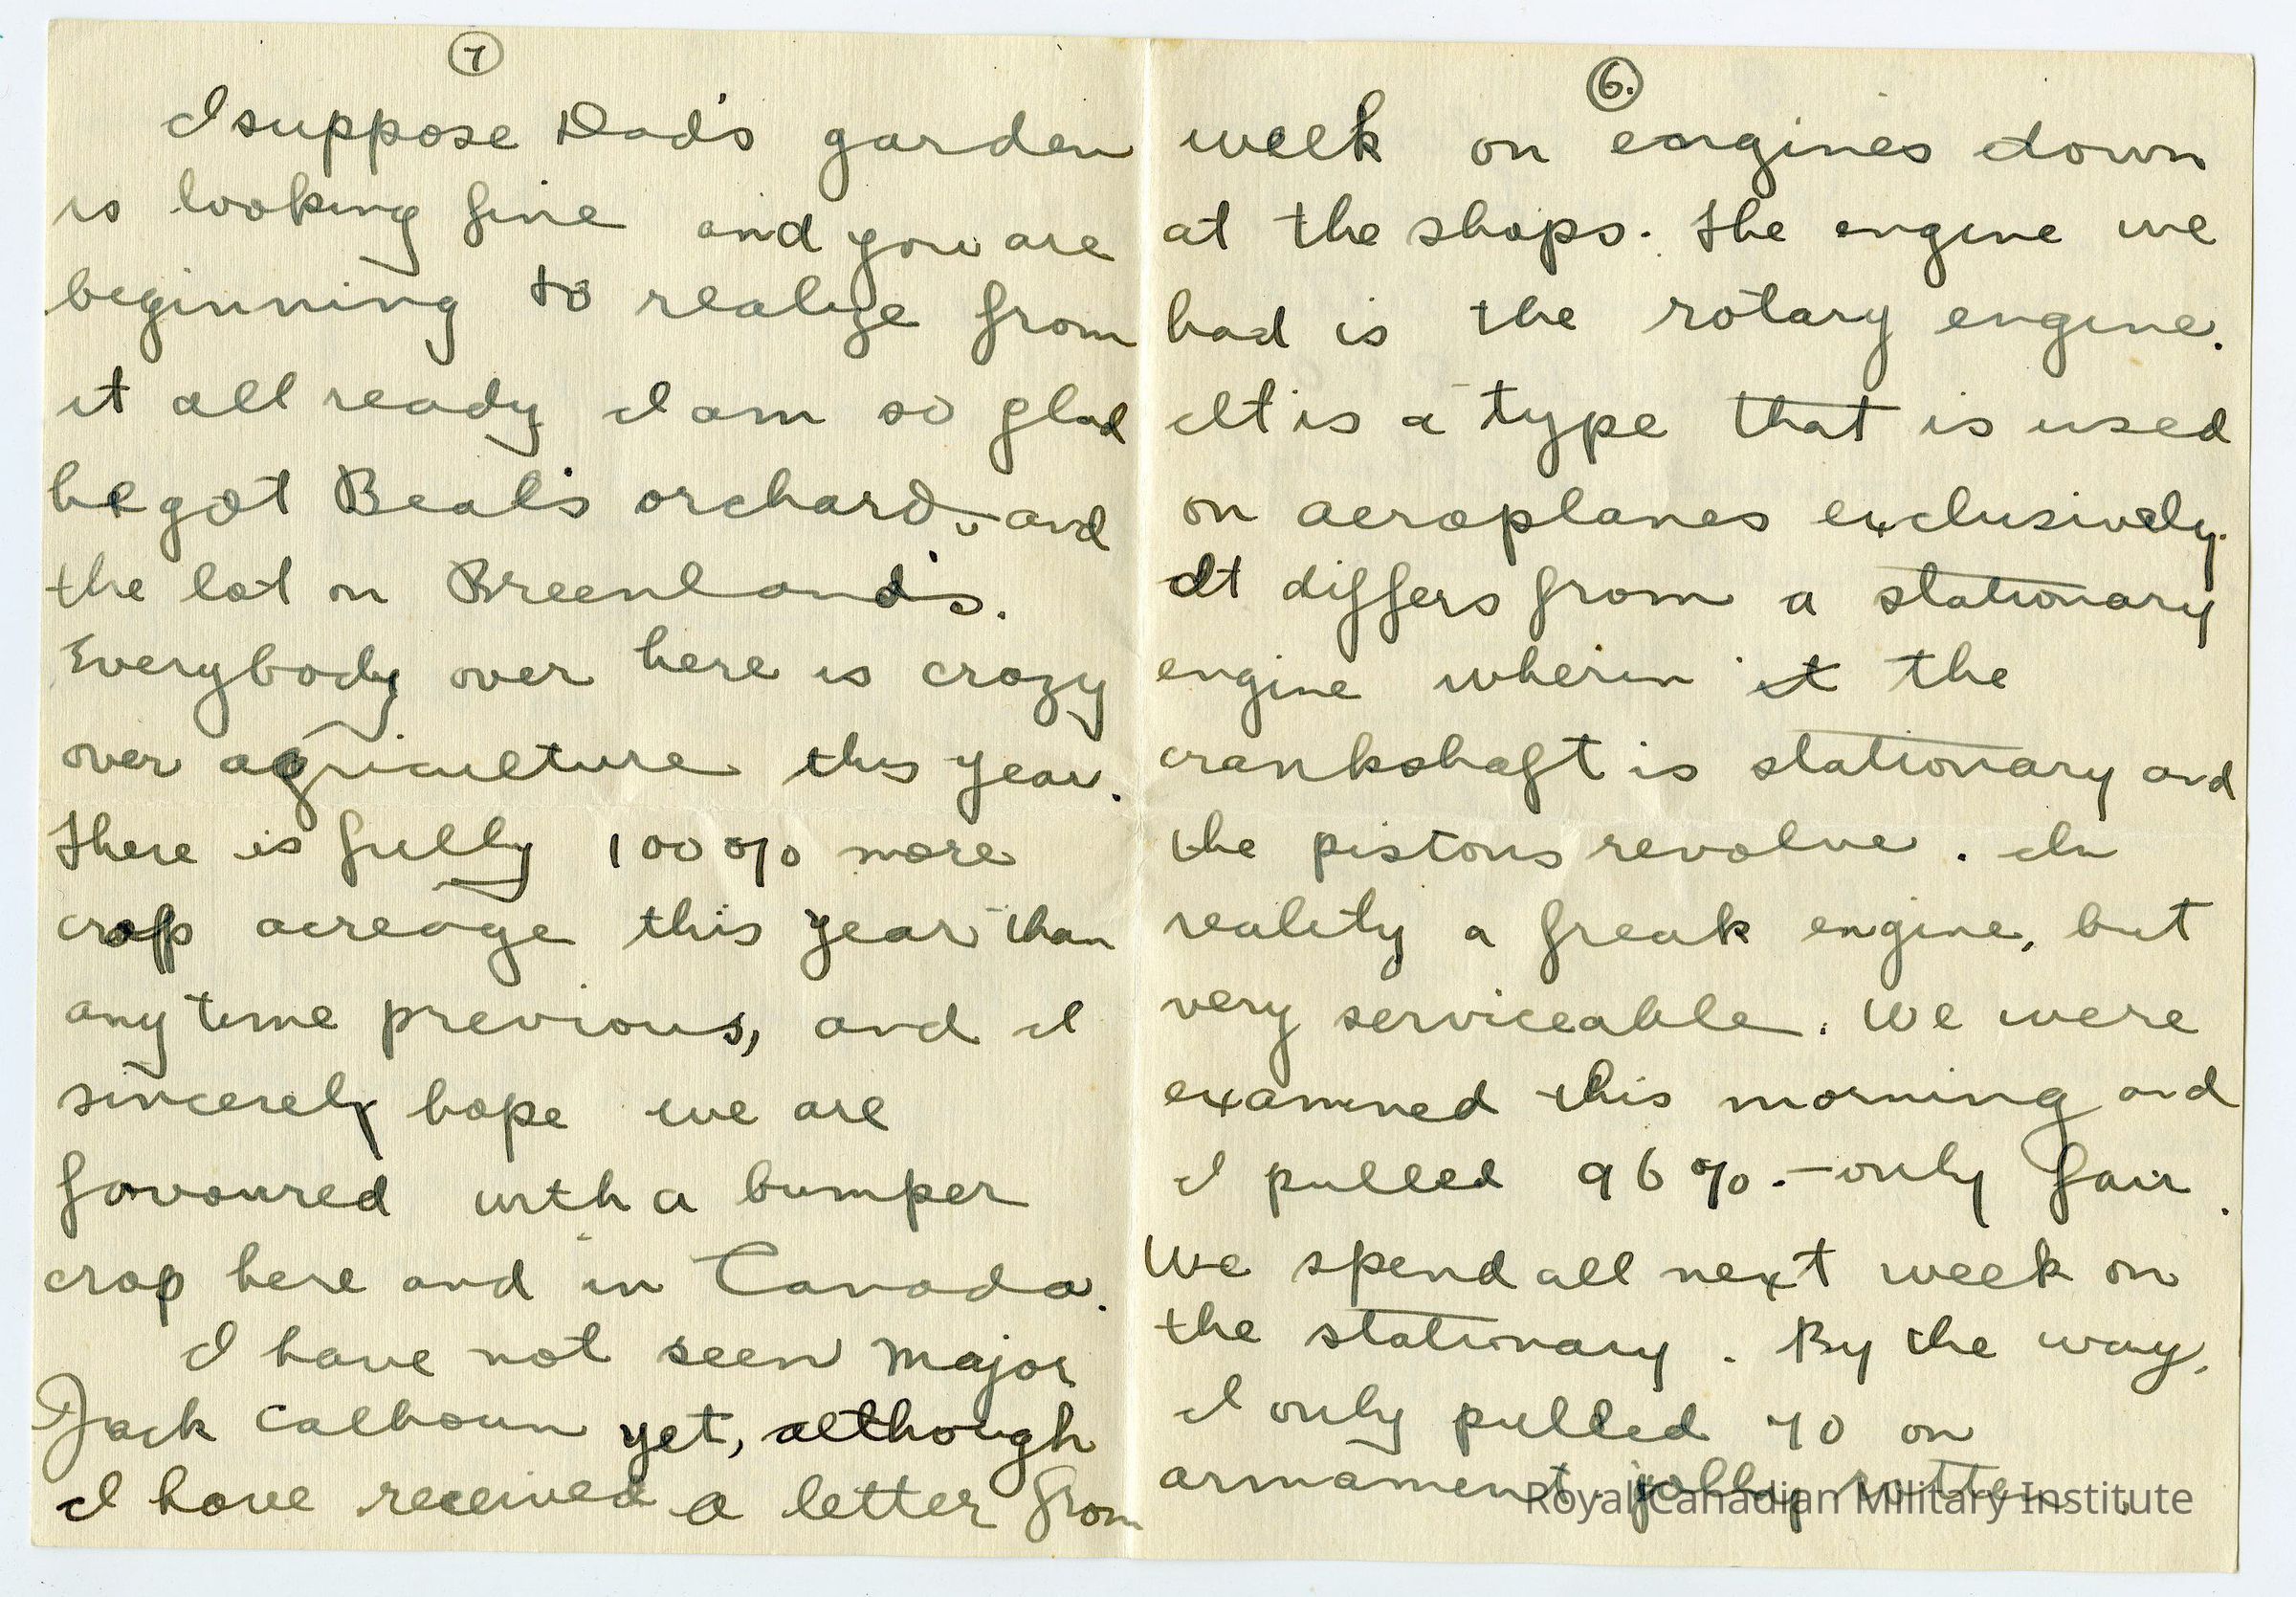 7
I suppose Dad's garden
is looking fine and you are
beginning to realize from
it all ready I am so glad
he got Beal's orchard, and
the lot on Breenland's.
Everybody over here is crazy
over agriculture this year.
There is fully 100% more
crop acreage this year than
any time previous, and I
sincerely hope we are
favoured with a bumper
crop here and in Canada.
I have not seen Major
Jack Calhoun yet, although
I have received a letter from
6.
week on engines down
at the shops. The engine we
had is the rotary engine.
It is a type that is used
on aeroplanes exclusively.
It differs from a stationary
engine wherein it the
crankshaft is stationary and
the pistons revolve. In
reality a freak engine, but
very serviceable. We were
examined this morning and
I pulled 96%. - only fair.
We spend all next week on
the stationary. By the way,
I only pulled 70 on
armament. jolly rotten.
Royal Canadian Military Institute